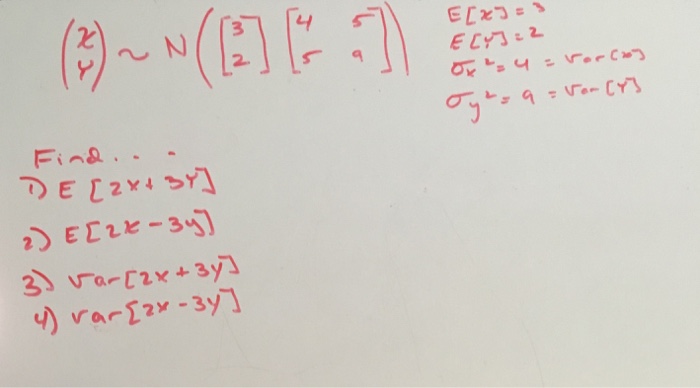 (X Y) ~ N([3 2] [4 5 5 9])
E[X] = 3
E[Y] = 2
σx² = 4 = var[x]
σy² = 9 = Var[Y]
Find...
1) E[2x+3Y]
2) E[2x-3y]
3) var[2x+3y]
4) var[2x-3Y]